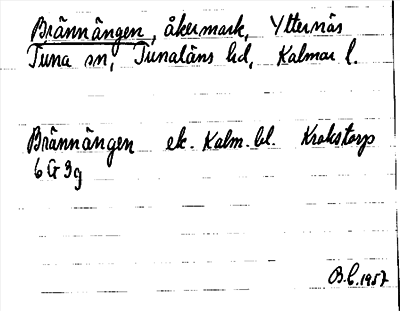 Brännängen, åkermark, Ytternäs
Tuna sn, Tunaläns hd, Kalmar l.
Brännängen ek. Kalm. bl. Krokstorp
6 G 3g
B.C. 1957